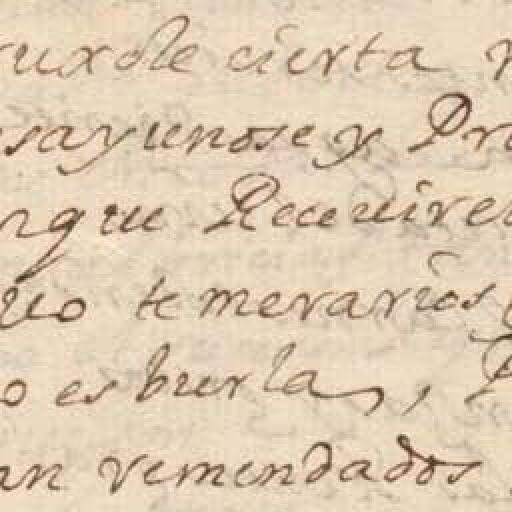 ruxole cierta
sayunose y Pro
nque Recuvire
uo temerarios
o es burla,
an remendados